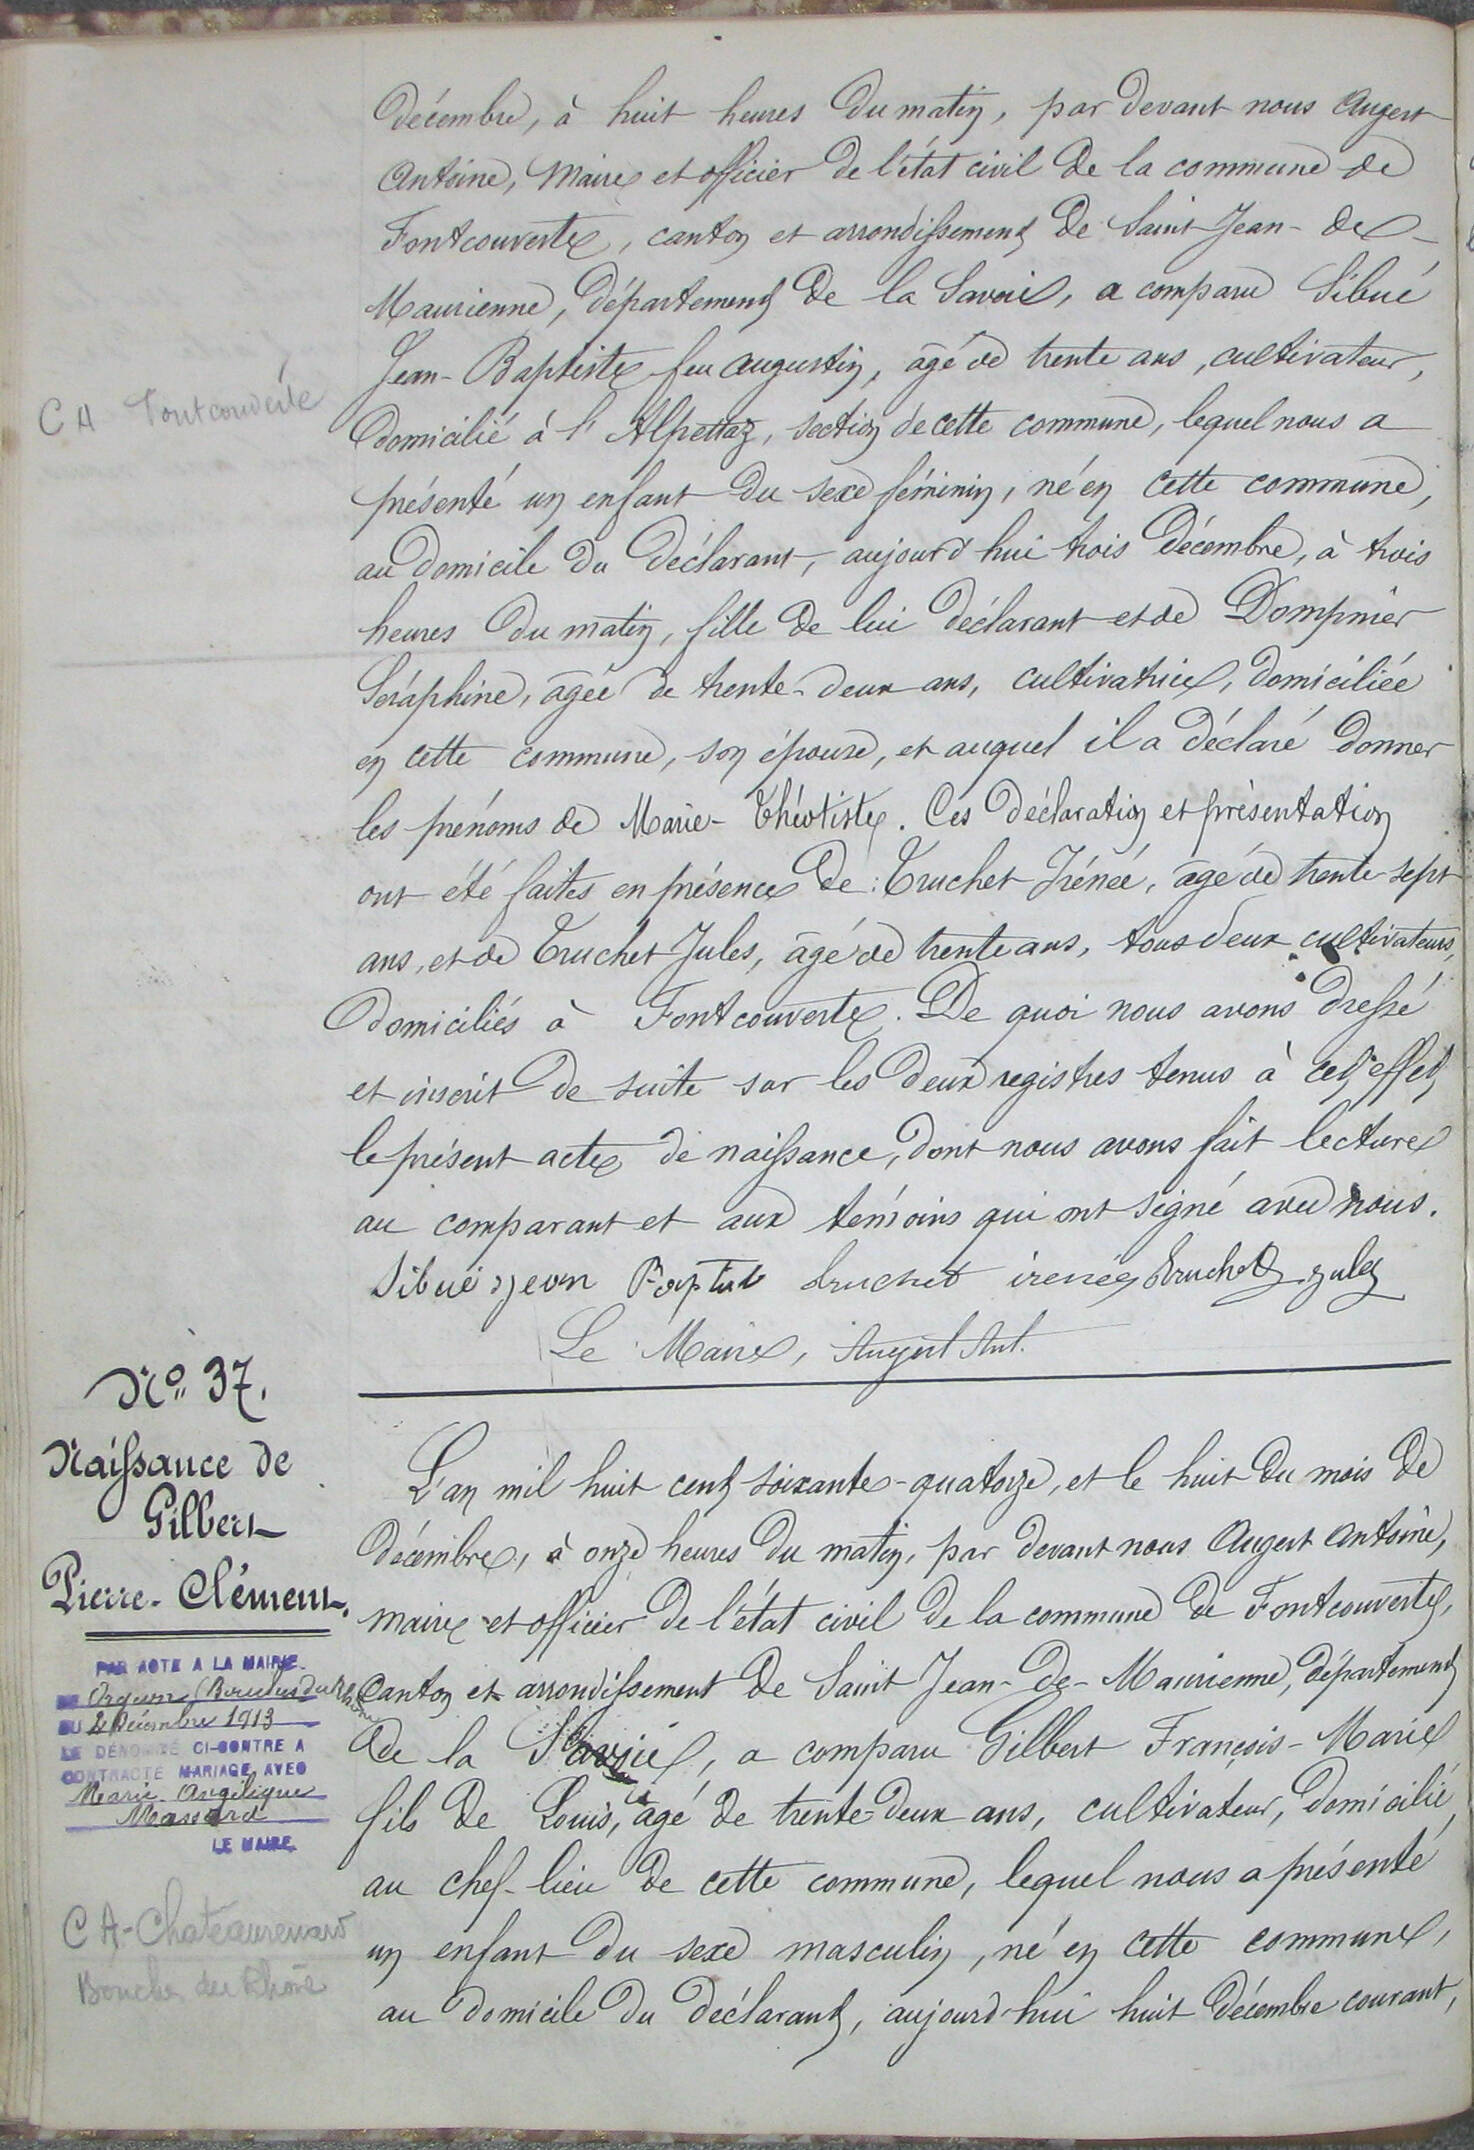 Décembre, à huit heures du matin, par devant nous Augert
Antoine, Maire et officier de l'état civil de la commune de
Fontcouverte, canton et arrondissement de Saint-Jean-de-
Maurienne, département de la Savoie, a comparu Sibué
Jean-Baptiste feu Augustin, âgé de trente ans, cultivateur,
CA Fontcouverte
domicilié à l'Alpettaz, section de cette commune, lequel nous a
présenté un enfant du sexe féminin, né en cette commune,
au domicile du déclarant, aujourd'hui trois Décembre, à trois
heures du matin, fille de lui déclarant et de Dompnier
Séraphine, âgée de trente-deux ans, cultivatrice, domiciliée
en cette commune, son épouse, et auquel il a déclaré donner
les prénoms de Marie-Théotiste. Ces déclaration et présentation
ont été faites en présence de : Truchet Irénée, âgé de trente-sept
ans, et de Truchet Jules, âgé de trente ans, tous deux cultivateurs,
domiciliés à Fontcouverte. De quoi nous avons dressé
et inscrit de suite sur les deux registres tenus à cet effet,
le présent acte de naissance, dont nous avons fait lecture
au comparant et aux témoins qui ont signé avec nous.
Sibué Jean Baptiste truchet irenée Truchet Jules
Le Maire, Augert Ant.
N° 37.
Naissance de
Gilbert
Pierre-Clément.
PAR ACTE A LA MAIRIE
Orgon (Bouches du Rhône
DU 2 Décembre 1913
LE DÉNOMMÉ CI-CONTRE A
CONTRACTÉ MARIAGE AVEC
Marie Angélique
LE MAIRE
CA-Chateaurenard
Bouches du Rhône
L'an mil huit cent soixante-quatorze, et le huit du mois de
décembre, à onze heures du matin, par devant nous Augert Antoine,
maire et officier de l'état civil de la commune de Fontcouverte,
canton et arrondissement de Saint-Jean-de-Maurienne, département
de la Savoie, a comparu Gilbert François-Marie
fils de Louis, âgé de trente-deux ans, cultivateur, domicilié
au chef-lieu de cette commune, lequel nous a présenté
un enfant du sexe masculin, né en cette commune,
au domicile du déclarant, aujourd'hui huit décembre courant,